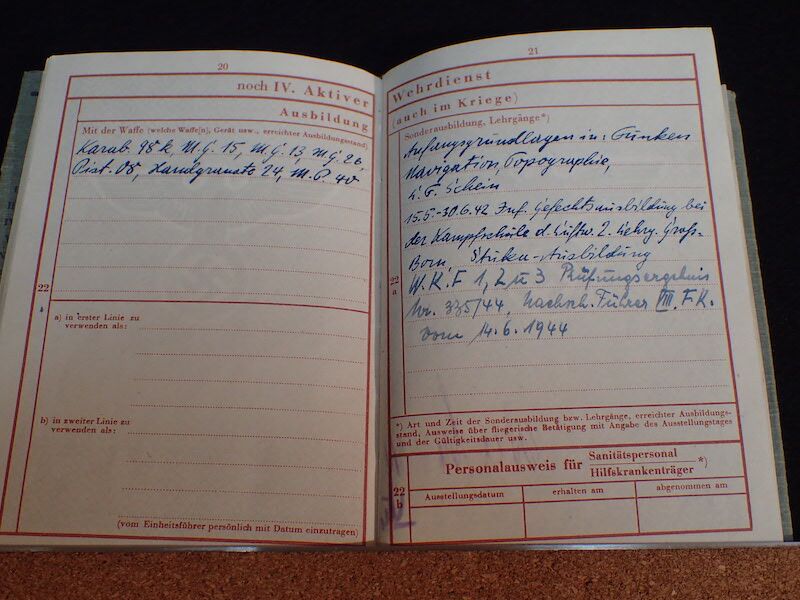 20
noch IV. Aktiver
Ausbildung
Mit der Waffe (welche Waffe[n], Gerät usw., erreichter Ausbildungsstand)
Karab. 98k, M.G. 15, M.G. 13, M.G. 26
Pist. 08, Handgranate 24, M.P. 40
22
a) in erster Linie zu
verwenden als:
b) in zweiter Linie zu
verwenden als:
(vom Einheitsführer persönlich mit Datum einzutragen)
21
Wehrdienst
(auch im Kriege)
Sonderausbildung, Lehrgänge*)
Anfangsgründlagen in: Funken
Navigation, Topographie,
Schein
15.5.-30.6.42 Inf. Gefechtsausbildung bei
der Kampfschule d. Luftw. 2. Lehrg. Groß-
Born Stuken-Ausbildung
W.K.F 1, 2 u 3 Prüfungsergebnis
Nr. 335/44, Nachsch. Führer VIII. F.K.
vom 14.6.1944
22
a
*) Art und Zeit der Sonderausbildung bzw. Lehrgänge, erreichter Ausbildungs-
stand, Ausweise über fliegerische Betätigung mit Angabe des Ausstellungstages
und der Gültigkeitsdauer usw.
Personalausweis für Sanitätspersonal
Hilfskrankenträger *)
22
b
Ausstellungsdatum erhalten am abgenommen am